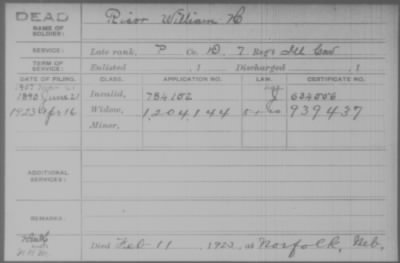 DEAD
NAME OF SOLDIER:
Risor William H
SERVICE:
Late rank, P Co. D, 7. Reg't Ill Cav
TERM OF SERVICE:
Enlisted , 1 Discharged , 1
DATE OF FILING. CLASS. APPLICATION NO. LAW. CERTIFICATE NO.
1907
1890 June 21 Invalid, 784102
1923 Apr 16 Widow, 1,204,144 939437
Minor,
ADDITIONAL SERVICES:
REMARKS:
Died Feb 11 1923, at Norfolk, Neb.